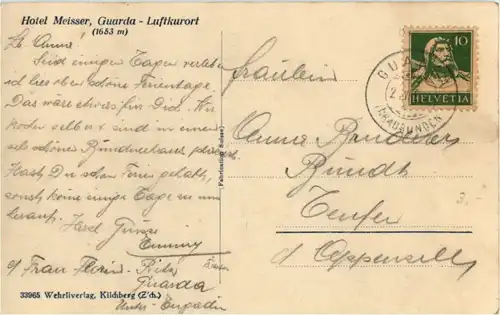 Hotel Meisser, Guarda - Luftkurort
(1653 m)
Lb. Anna!
Seid einigen Tagen verleben
ich hier schöne Ferientage.
Das wäre etwas für Dich. Wir
kochen selbst & sind in einem
sehr schönen Bündnerhaus
Hast Du schon Ferien gehabt,
sonst komme einige Tage zu uns
herauf. Herzl Grüsse
Emmy
c/ Frau Florin-
Guarda
Unter-Engadin
33965 Wehrliverlag, Kilchberg (Zch.)
Fräulein
Anna
Teufen
Ct. Appenzell
10
HELVETIA
GUARDA
(GRAUBÜNDEN)
3.-